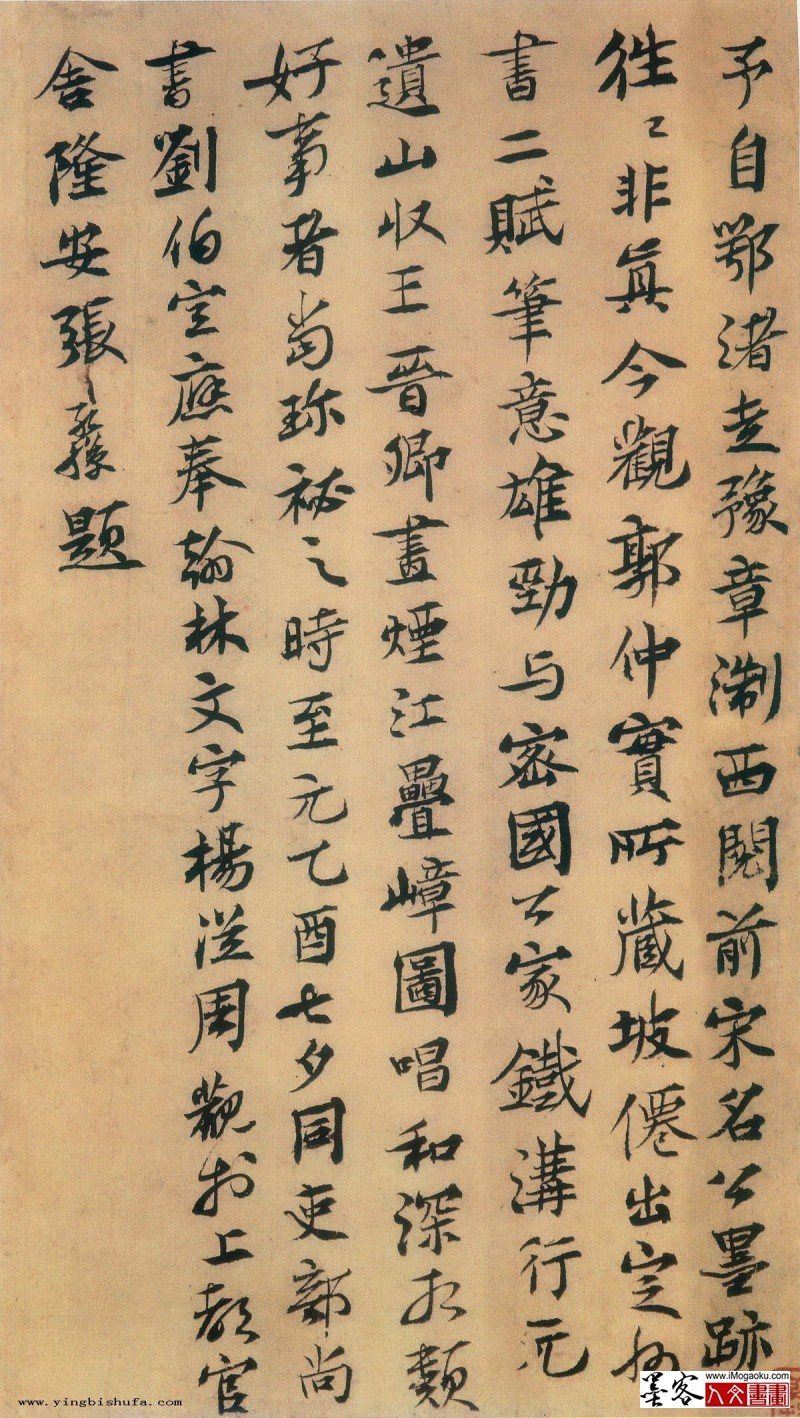 予自鄂渚走豫章淛西閱前宋名公墨跡
往〻非真今觀郭仲實所藏坡僊出定州
書二賦筆意雄勁与密國公家鐵溝行元
遺山收王晉卿畫煙江疊嶂圖唱和深相類
好事者當珎祕之時至元乙酉七夕同吏部尚
書劉伯宣應奉翰林文字楊從周觀於上都官
舍隆安張孫題
www.yingbishufa.com
www.iMogaoku.com
墨客 人文書畫